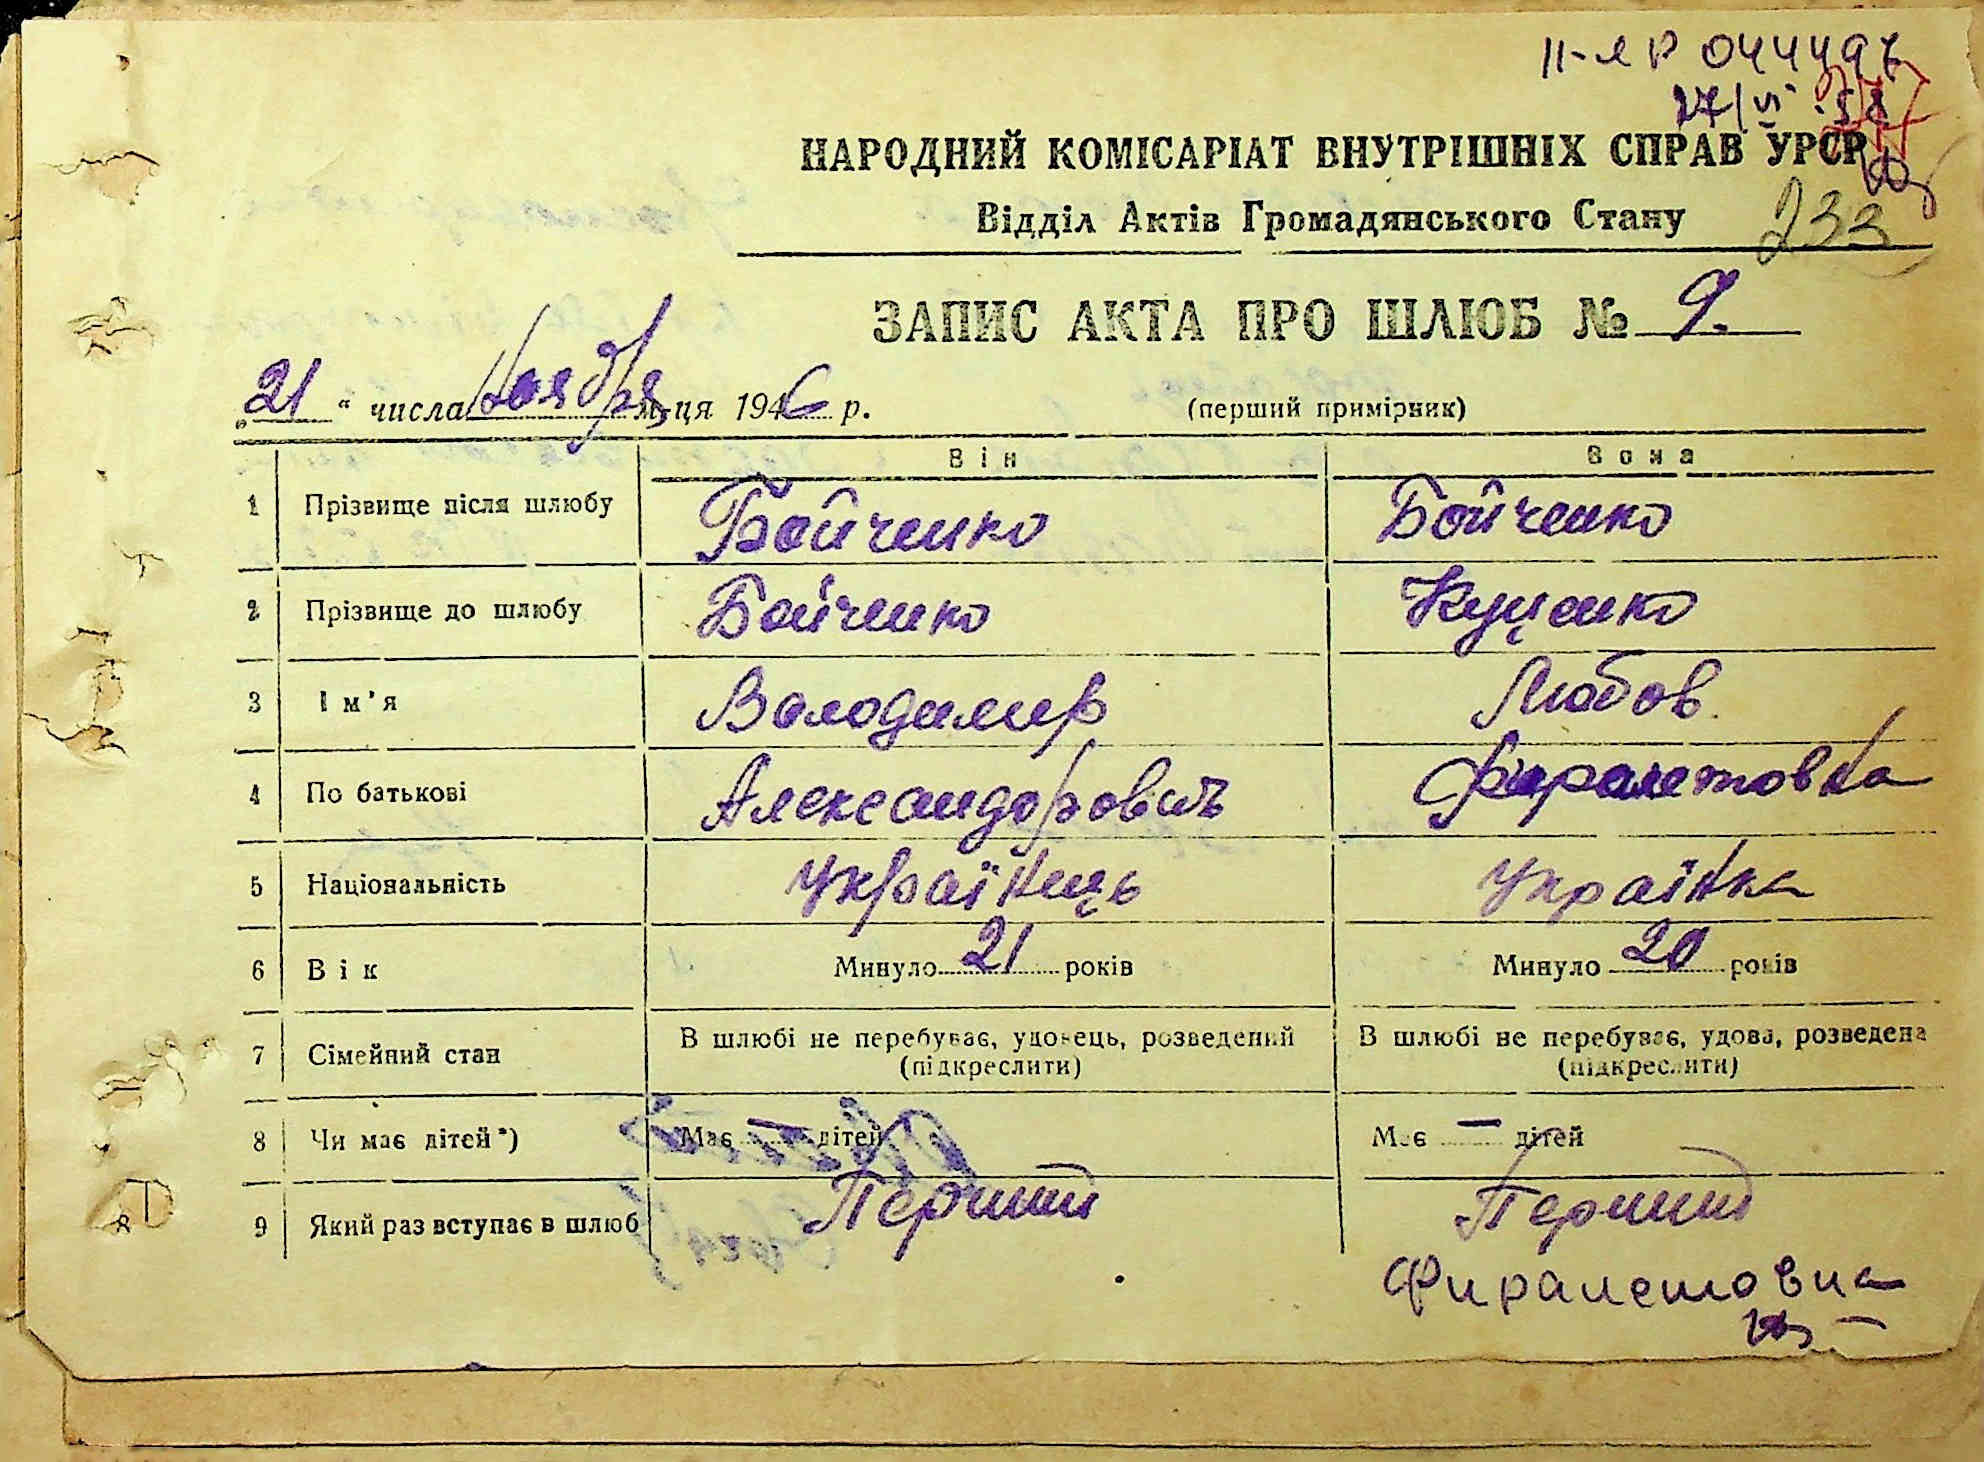 II-ЯР 044497
27/VI 58
НАРОДНИЙ КОМІСАРІАТ ВНУТРІШНІХ СПРАВ УРСР
Відділ Актів Громадянського Стану 233
ЗАПИС АКТА ПРО ШЛЮБ № 9.
„21“ числа Ноября м-ця 1946 р. (перший примірник)
Він Вона
1 Прізвище після шлюбу Бойченко Бойченко
2 Прізвище до шлюбу Бойченко Куценко
3 Ім'я Володимир Любов
4 По батькові Александрович Фиралетовна
5 Національність Українець Українка
6 Вік Минуло 21 років Минуло 20 років
7 Сімейний стан В шлюбі не перебуває, удовець, розведений (підкреслити) В шлюбі не перебуває, удова, розведена (підкреслити)
8 Чи має дітей*) Має — дітей Має — дітей
9 Який раз вступає в шлюб Перший Перший
Фиралетовна